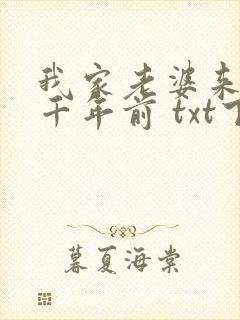 我家老婆来
千年前 txt下
暮夏海棠